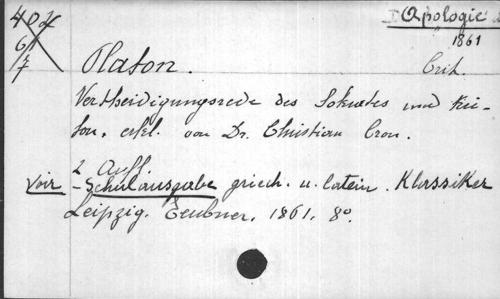 402
6
7
Apologie
1861
Platon.
Crit.
Vertheidigungsrede des Sokrates und Kri-
ton, erkl. von Dr. Christian Cron.
2 Aufl.
voir - Schulausgabe griech. u. latein. Klassiker
Leipzig. Teubner. 1861. 8º.